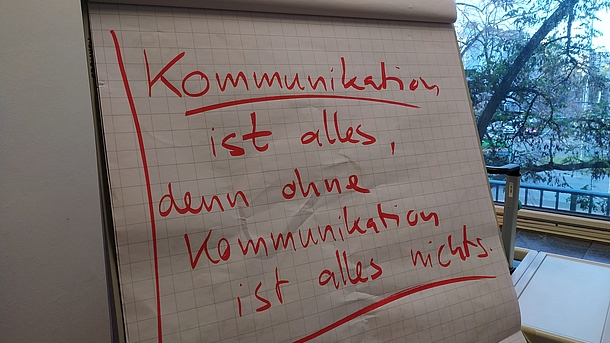 Kommunikation
ist alles,
denn ohne
Kommunikation
ist alles nichts.